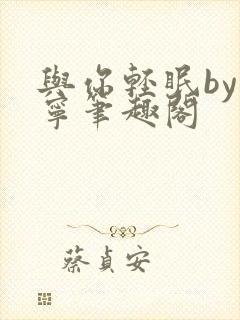 與你輕眠by
寧筆趣閣
蔡貞安